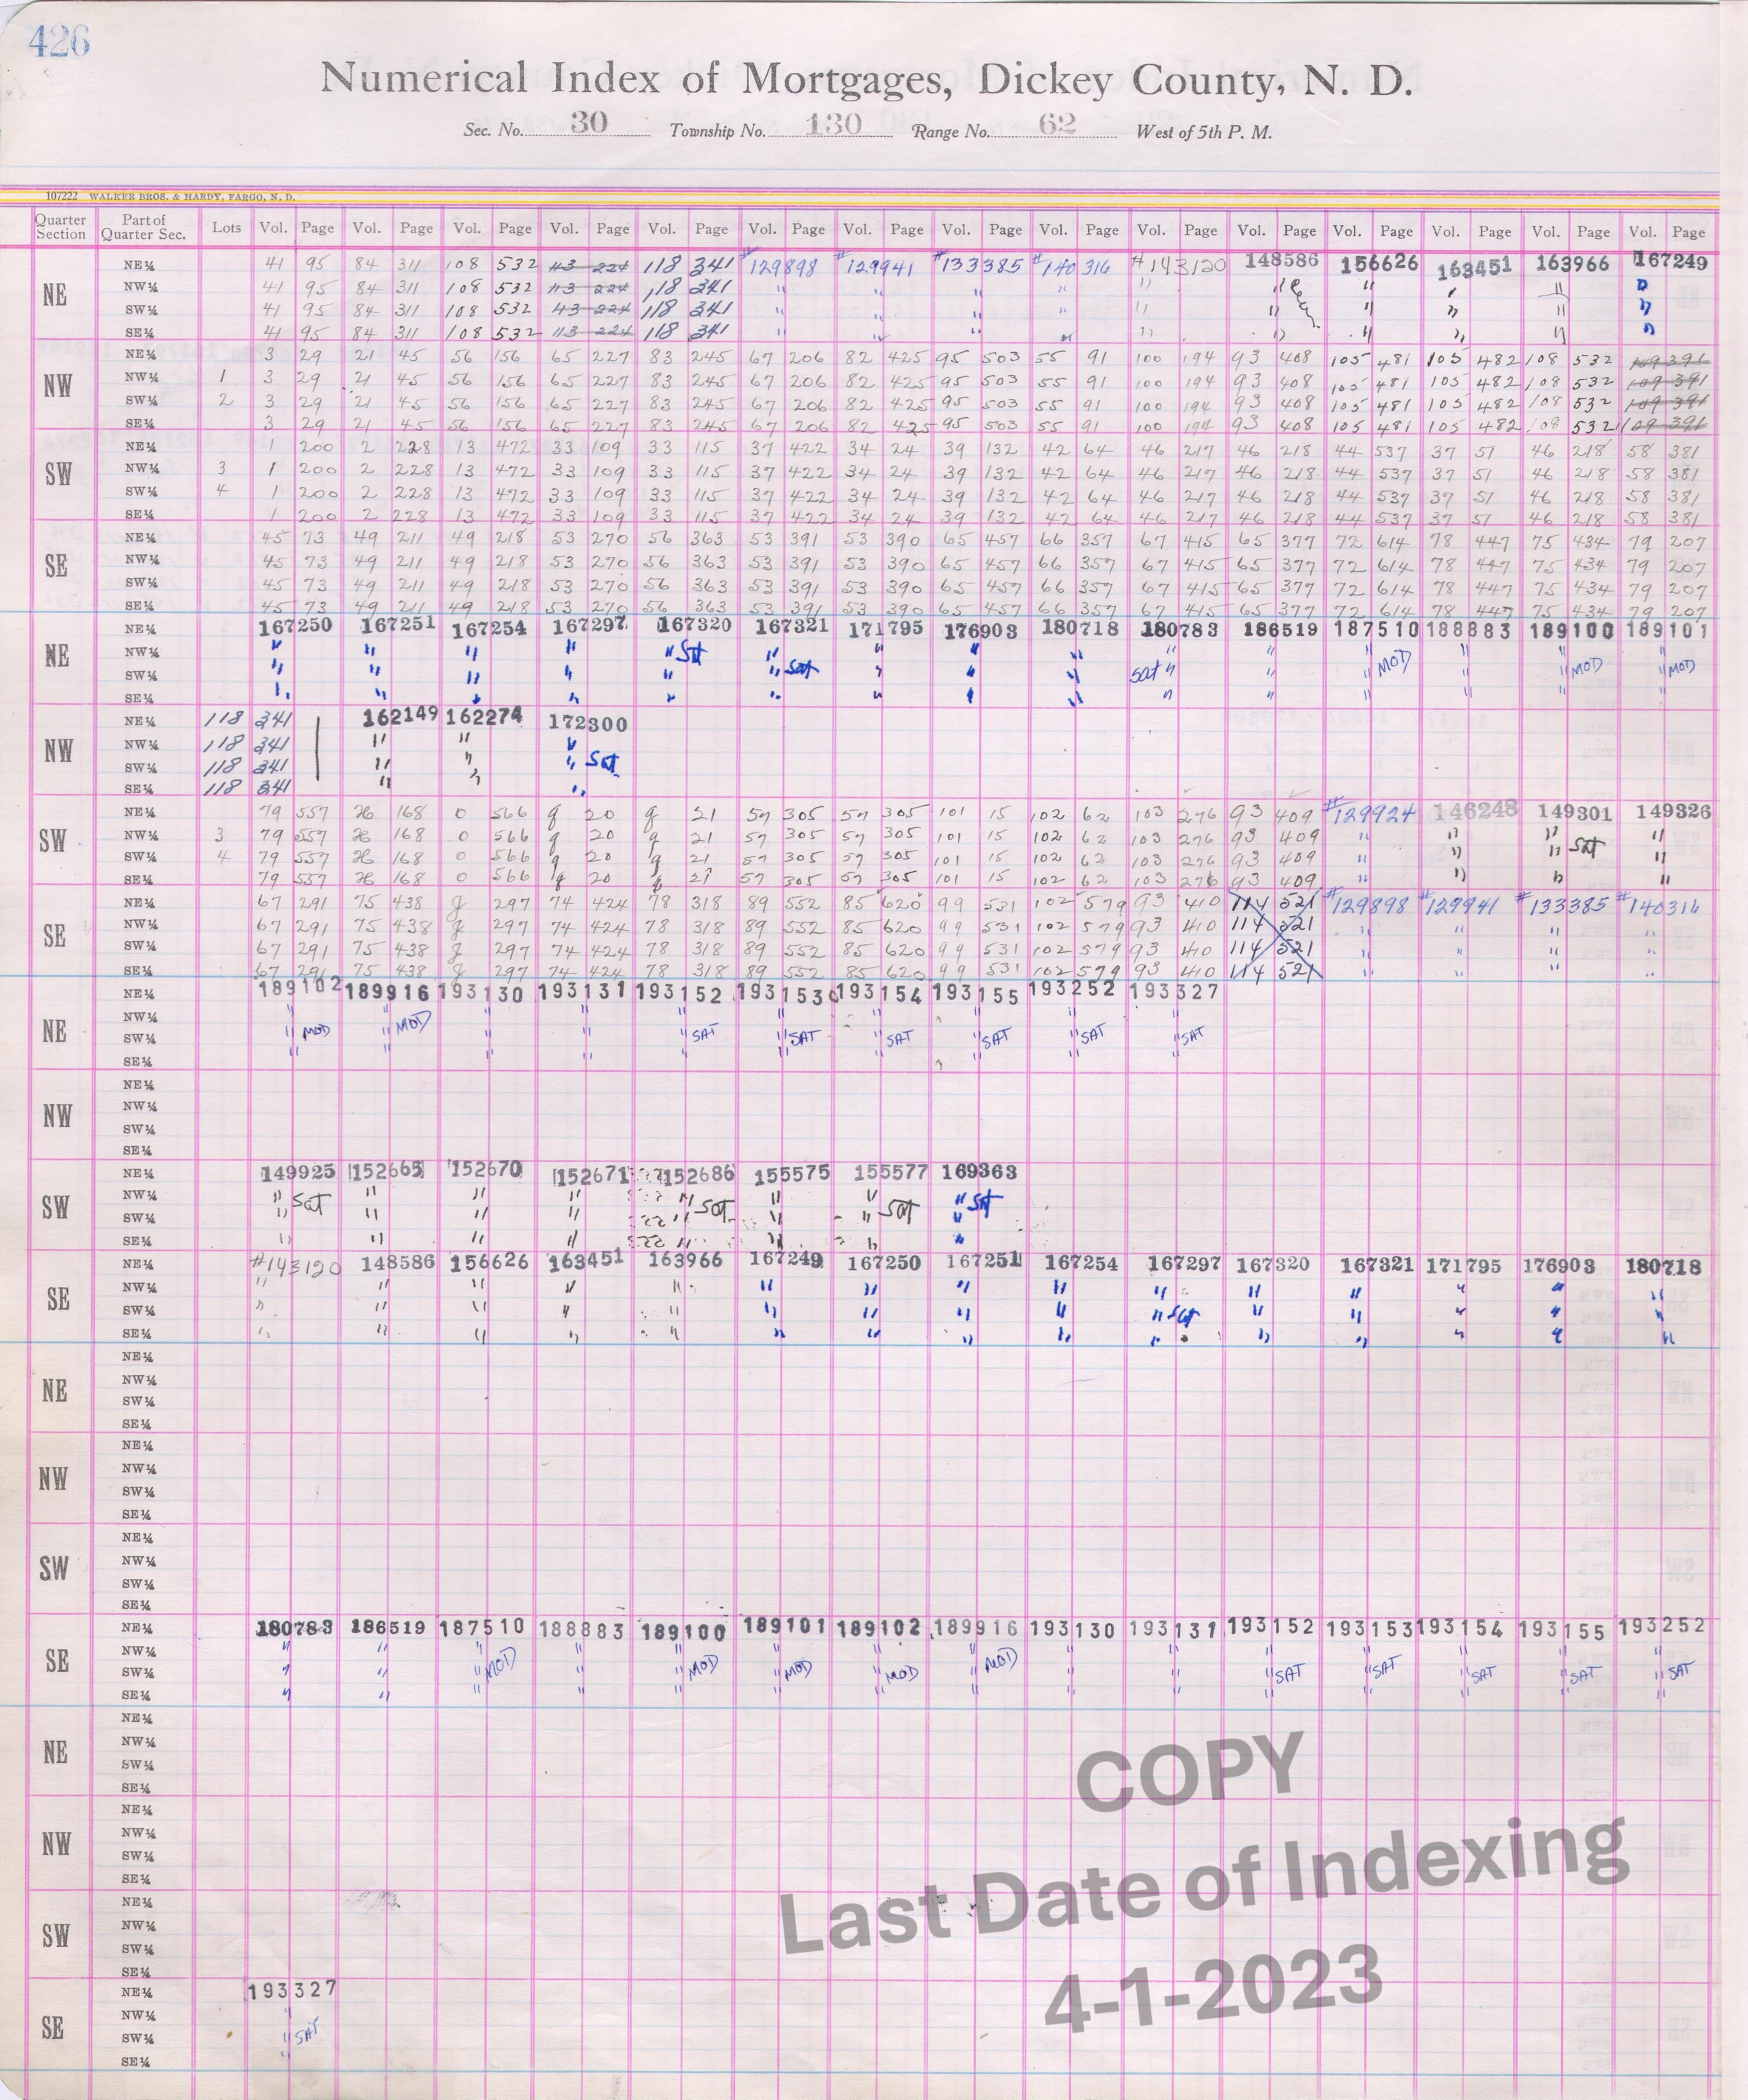 426
Numerical Index of Mortgages, Dickey County, N. D.
Sec. No. 30 Township No. 130 Range No. 62 West of 5th P. M.
107222 WALKER BROS. & HARDY, FARGO, N. D.
Quarter Section Part of Quarter Sec. Lots Vol. Page Vol. Page Vol. Page Vol. Page Vol. Page Vol. Page Vol. Page Vol. Page Vol. Page Vol. Page Vol. Page Vol. Page Vol. Page Vol. Page Vol. Page
NE
NE¼ 41 95 84 311 108 532 113 224 118 341 #129898 #129941 #133385 #140316 #143120 148586 156626 163451 163966 167249
NW¼ 41 95 84 311 108 532 113 224 118 341 " " " " " " " " " "
SW¼ 41 95 84 311 108 532 113 224 118 341 " " " " " " " " " "
SE¼ 41 95 84 311 108 532 113 224 118 341 " " " " " " " " " "
NW
NE¼ 3 29 21 45 56 156 65 227 83 245 67 206 82 425 95 503 55 91 100 194 93 408 105 481 105 482 108 532 109 391
NW¼ 1 3 29 21 45 56 156 65 227 83 245 67 206 82 425 95 503 55 91 100 194 93 408 105 481 105 482 108 532 109 391
SW¼ 2 3 29 21 45 56 156 65 227 83 245 67 206 82 425 95 503 55 91 100 194 93 408 105 481 105 482 108 532 109 391
SE¼ 3 29 21 45 56 156 65 227 83 245 67 206 82 425 95 503 55 91 100 194 93 408 105 481 105 482 108 532 109 391
SW
NE¼ 1 200 2 228 13 472 33 109 33 115 37 422 34 24 39 132 42 64 46 217 46 218 44 537 37 51 46 218 58 381
NW¼ 3 1 200 2 228 13 472 33 109 33 115 37 422 34 24 39 132 42 64 46 217 46 218 44 537 37 51 46 218 58 381
SW¼ 4 1 200 2 228 13 472 33 109 33 115 37 422 34 24 39 132 42 64 46 217 46 218 44 537 37 51 46 218 58 381
SE¼ 1 200 2 228 13 472 33 109 33 115 37 422 34 24 39 132 42 64 46 217 46 218 44 537 37 51 46 218 58 381
SE
NE¼ 45 73 49 211 49 218 53 270 56 363 53 391 53 390 65 457 66 357 67 415 65 377 72 614 78 447 75 434 79 207
NW¼ 45 73 49 211 49 218 53 270 56 363 53 391 53 390 65 457 66 357 67 415 65 377 72 614 78 447 75 434 79 207
SW¼ 45 73 49 211 49 218 53 270 56 363 53 391 53 390 65 457 66 357 67 415 65 377 72 614 78 447 75 434 79 207
SE¼ 45 73 49 211 49 218 53 270 56 363 53 391 53 390 65 457 66 357 67 415 65 377 72 614 78 447 75 434 79 207
NE
NE¼ 167250 167251 167254 167297 167320 167321 171795 176903 180718 180783 186519 187510 188883 189100 189101
NW¼ " " " " " Sat " " " " " " " " " "
SW¼ " " " " " " Sat " " " Sat " " " MOD " " MOD " MOD
SE¼ " " " " " " " " " " " " " " "
NW
NE¼ 118 341 162149 162274 172300
NW¼ 118 341 " " "
SW¼ 118 341 " " " Sat
SE¼ 118 341 " " "
SW
NE¼ 79 557 168 0 566 9 20 9 21 57 305 57 305 101 15 102 62 103 276 93 409 #129924 146248 149301 149326
NW¼ 3 79 557 168 0 566 9 20 9 21 57 305 57 305 101 15 102 62 103 276 93 409 " " " "
SW¼ 4 79 557 168 0 566 9 20 9 21 57 305 57 305 101 15 102 62 103 276 93 409 " " " Sat "
SE¼ 79 557 168 0 566 20 21 57 305 57 305 101 15 102 62 103 276 93 409 " " " "
SE
NE¼ 67 291 75 438 297 74 424 78 318 89 552 85 620 99 531 102 579 93 410 114 521 #129898 #129941 #133385 #140316
NW¼ 67 291 75 438 297 74 424 78 318 89 552 85 620 99 531 102 579 93 410 114 521 " " " "
SW¼ 67 291 75 438 297 74 424 78 318 89 552 85 620 99 531 102 579 93 410 114 521 " " " "
SE¼ 67 291 75 438 297 74 424 78 318 89 552 85 620 99 531 102 579 93 410 114 521 " " " "
NE
NE¼ 189102 189916 193130 193131 193152 193153 193154 193155 193252 193327
NW¼ " " " " " " " " " "
SW¼ " MOD " MOD " " " SAT " SAT " SAT " SAT " SAT " SAT
SE¼ " " " " " " " " " "
NW
NE¼
NW¼
SW¼
SE¼
SW
NE¼ 149925 152665 152670 152671 152686 155575 155577 169363
NW¼ " Sat " " " " " " " Sat
SW¼ " " " " " Sat " " Sat "
SE¼ " " " " " " " "
SE
NE¼ #143120 148586 156626 163451 163966 167249 167250 167251 167254 167297 167320 167321 171795 176903 180718
NW¼ " " " " " " " " " " " " " " "
SW¼ " " " " " " " " " " Sat " " " " "
SE¼ " " " " " " " " " " " " " " "
NE
NE¼
NW¼
SW¼
SE¼
NW
NE¼
NW¼
SW¼
SE¼
SW
NE¼
NW¼
SW¼
SE¼
SE
NE¼ 180783 186519 187510 188883 189100 189101 189102 189916 193130 193131 193152 193153 193154 193155 193252
NW¼ " " " " " " " " " " " " " " "
SW¼ " " " MOD " " MOD " MOD " MOD " MOD " " " SAT " SAT " SAT " SAT " SAT
SE¼ " " " " " " " " " " " " " " "
NE
NE¼
NW¼
SW¼
SE¼
NW
NE¼
NW¼
SW¼
SE¼
SW
NE¼
NW¼
SW¼
SE¼
SE
NE¼ 193327
NW¼ "
SW¼ " SAT
SE¼ "
COPY
Last Date of Indexing
4-1-2023